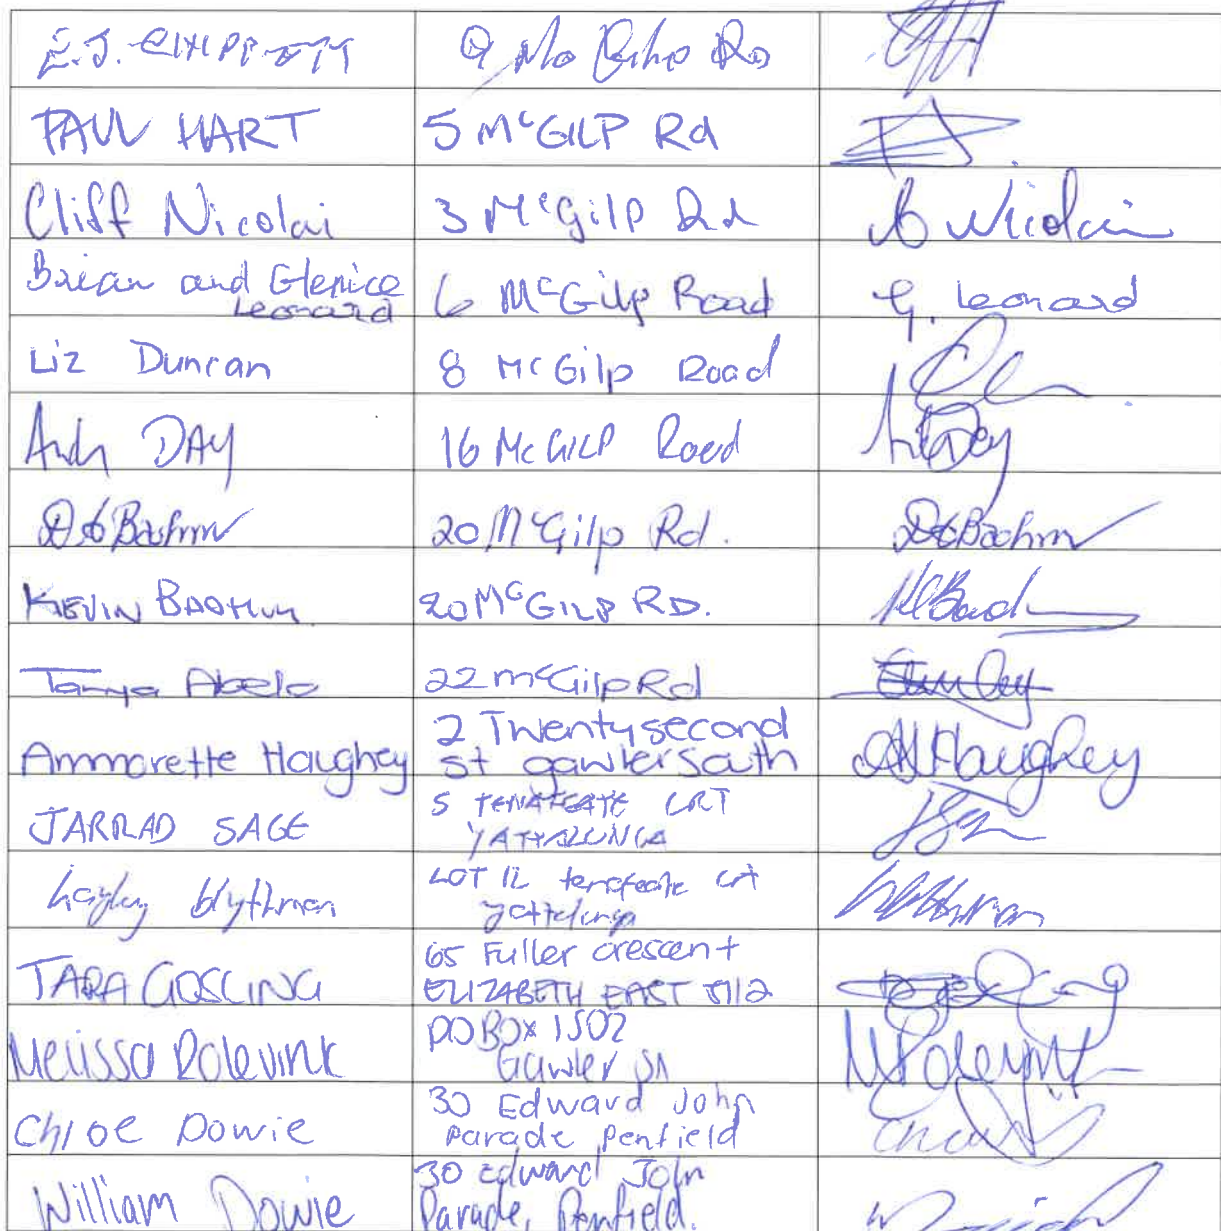 E.J. CHIPPETT 9 Mc Gilp Rd
PAUL HART 5 McGILP Rd
Cliff Nicolai 3 McGilp Rd C Nicolai
Brian and Glenice
Leonard 6 McGilp Road G. Leonard
Liz Duncan 8 McGilp Road
Andy DAY 16 McGILP Road
Deb Baohm 20 McGilp Rd. Deb Baohm
KEVIN BAOHM 20 McGILP RD.
Tanya Abela 22 mcGilp Rd
Ammorette Haughey 2 Twentysecond
st gawler South AHaughey
JARRAD SAGE 5 TENAFEATE CRT
YATTALUNGA
Hayley Wythman LOT 12 tenafeate crt
yattalunga
TARA GOSLING 65 Fuller crescent
ELIZABETH EAST 5112
Melissa Polevink PO BOX 1502
Gawler SA
Chloe Dowie 30 Edward John
parade penfield
William Dowie 30 Edward John
Parade, Penfield.